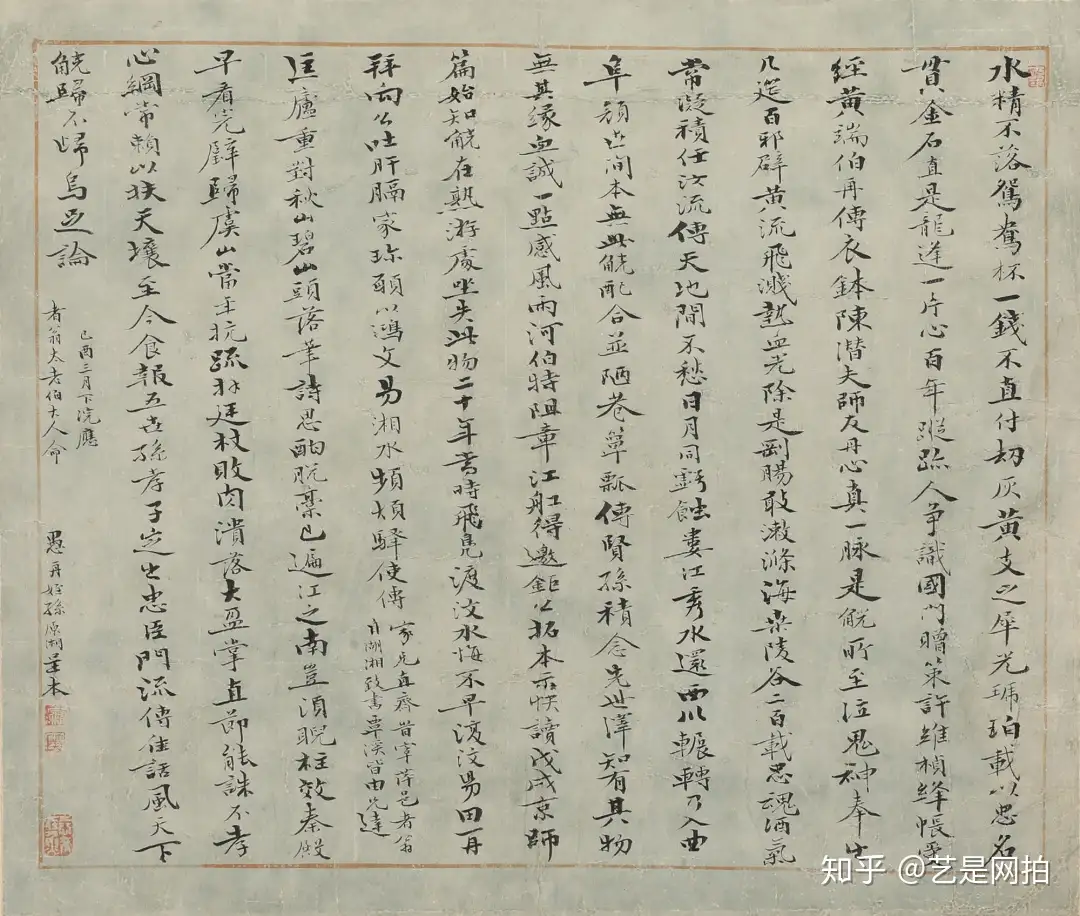 水精不落鴛鴦杯一錢不直付劫灰黃支之犀光琥珀載以忠名
貫金石直是龍逄一片心百年蹤跡人爭識國門贈策許維楨絳帳靈
經黃端伯再傳衣鉢陳潛夫師友丹心真一脉是觥所至泣鬼神奉之
几筵百邪辟黃流飛濺熱血光除是剛腸敢漱滌海桑陵谷二百載忠魂酒氣
常凝積任汶流傳天地間不愁日月同虧蝕婁江秀水還西川輾轉乃入曲
阜顏世間本無此觥配合並陋巷簞瓢傳賢孫積念先世澤知有其物
無其緣血誠一點感風雨河伯特阻章江船得邀鉅公拓本示快讀戊戌京師
篇始知觥在熟游處坐失此物二十年當時飛鳧渡汶水悔不早渡汶易田再
拜向公吐肝膈家珍願以鴻文易湘水頻煩驛使傳 家先直齋昔宰菏邑者翁
自湖湘致書覃溪皆由先達
匡廬重對秋山碧山頭落筆詩思酣脫稾已遍江之南豈須睨柱效秦殿
早看完璧歸虞山當年抗疏拜廷杖敗肉潰落大盈掌直節能誅不孝
心綱常賴以扶天壤至今食報五世孫孝子定出忠臣門流傳佳話風天下
觥歸不歸烏足論
己酉三月下浣應
者翁太老伯大人命
愚再姪孫原湘呈本
知乎 @艺是网拍